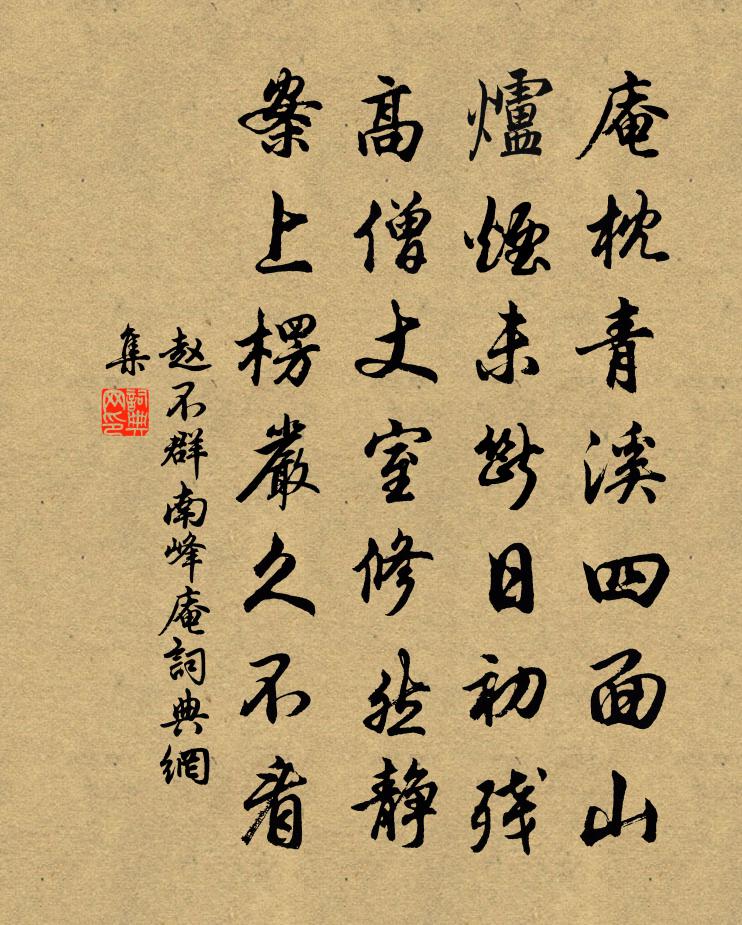 庵枕青溪四面山
爐煙未斷日初残
高僧丈室修然靜
案上楞嚴久不看
赵不群南峰庵詞典網
集
詞典
网印